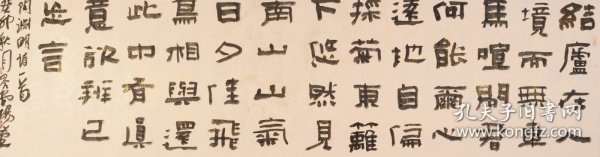 結廬在人
境而無車
馬喧問君
何能爾心
遠地自偏
採菊東籬
下悠然見
南山山氣
日夕佳飛
鳥相與還
此中有眞
意欲辨已
忘言
陶淵明詩一首
癸卯秋月
孔夫子旧书网
www.kongfz.com